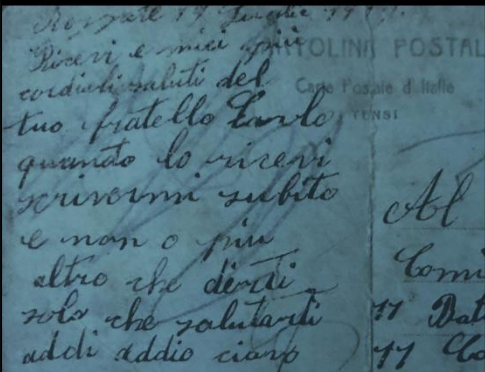 Ricevi e miei più
cordiali saluti del
tuo fratello Carlo
quando lo ricevi
scrivermi subito
e non o più
altro che dirti
solo che salutarti
addi addio ciavo
TOLINA POSTAL
Carte Postale d'Italie
TENSI
Al
Comi
11 Bat
11 Co